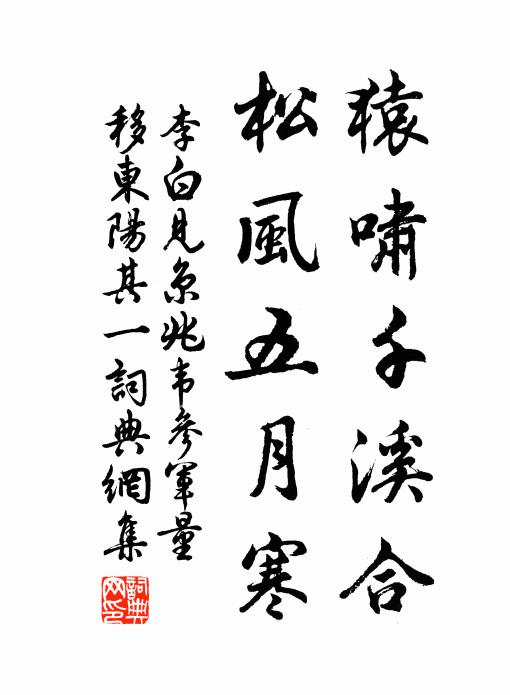 猿嘯千溪合
松風五月寒
李白見京兆韦參軍量
移東陽其一詞典網集
詞典网印